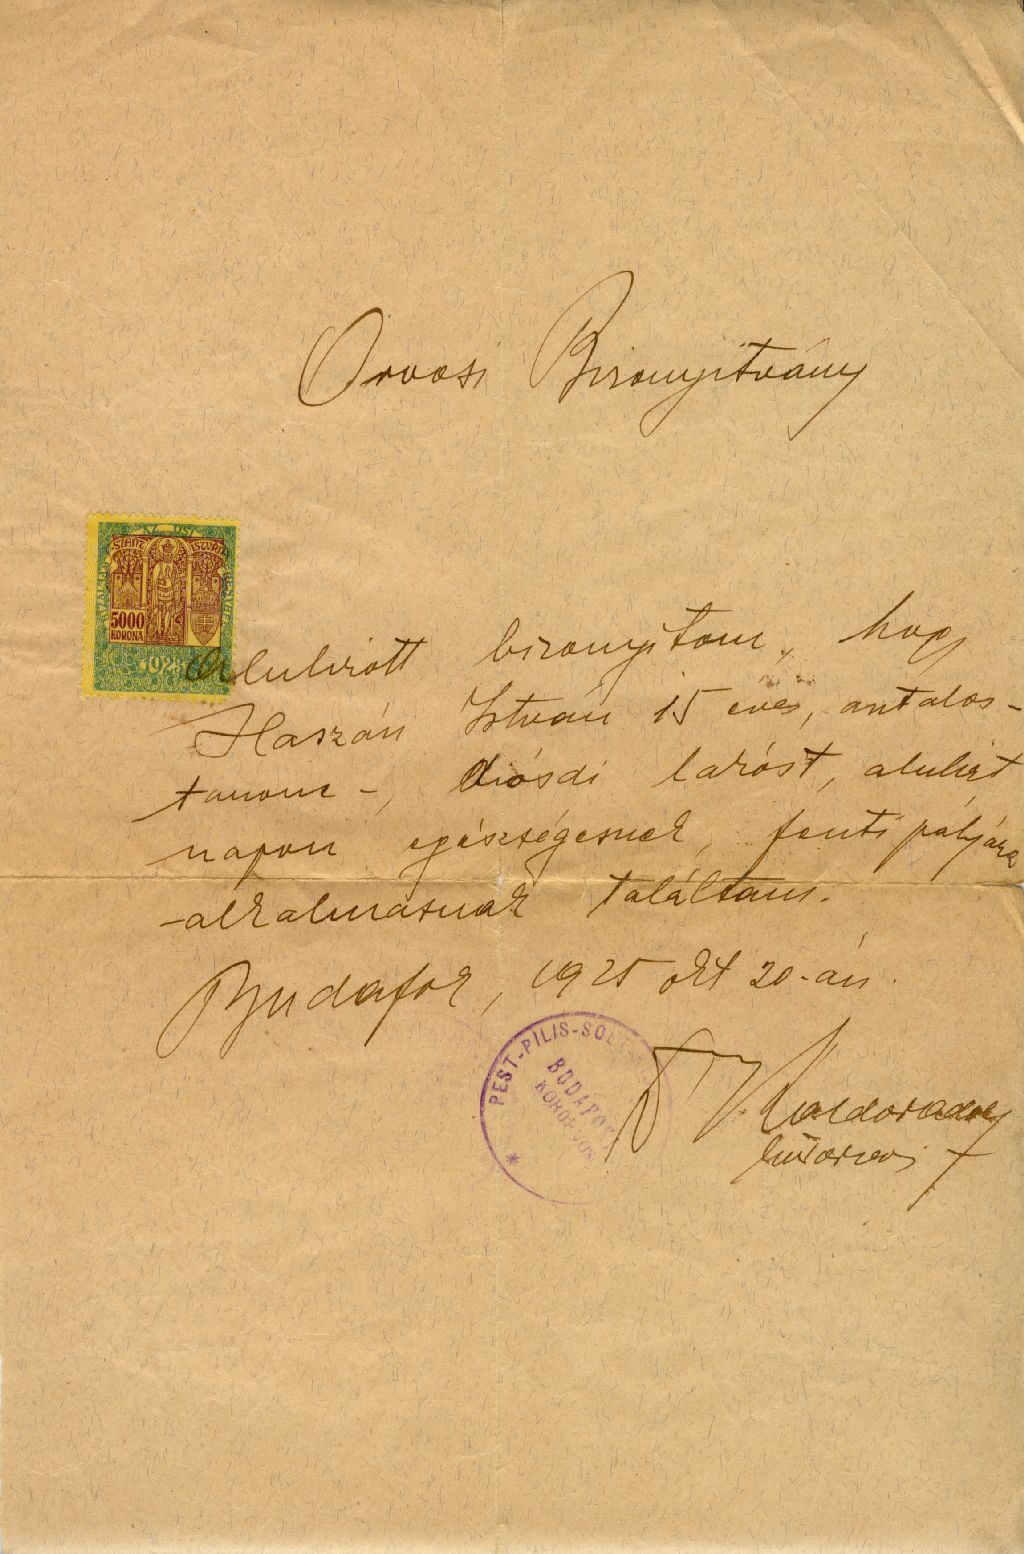 Orvosi Bizonyitvány
SZENT ISTVÁN
5000
KORONA
Alulirott bizonyitom, hogy
Haszán István 15 éves, asztalos-
tanonc-, diósdi lakóst, alulirt
napon egészségesnek, fenti pályára
-alkalmasnak találtam.
Budafok, 1925 okt 20-án.
PEST-PILIS-SOLT-
BUDAFOK
KÖRORVOS